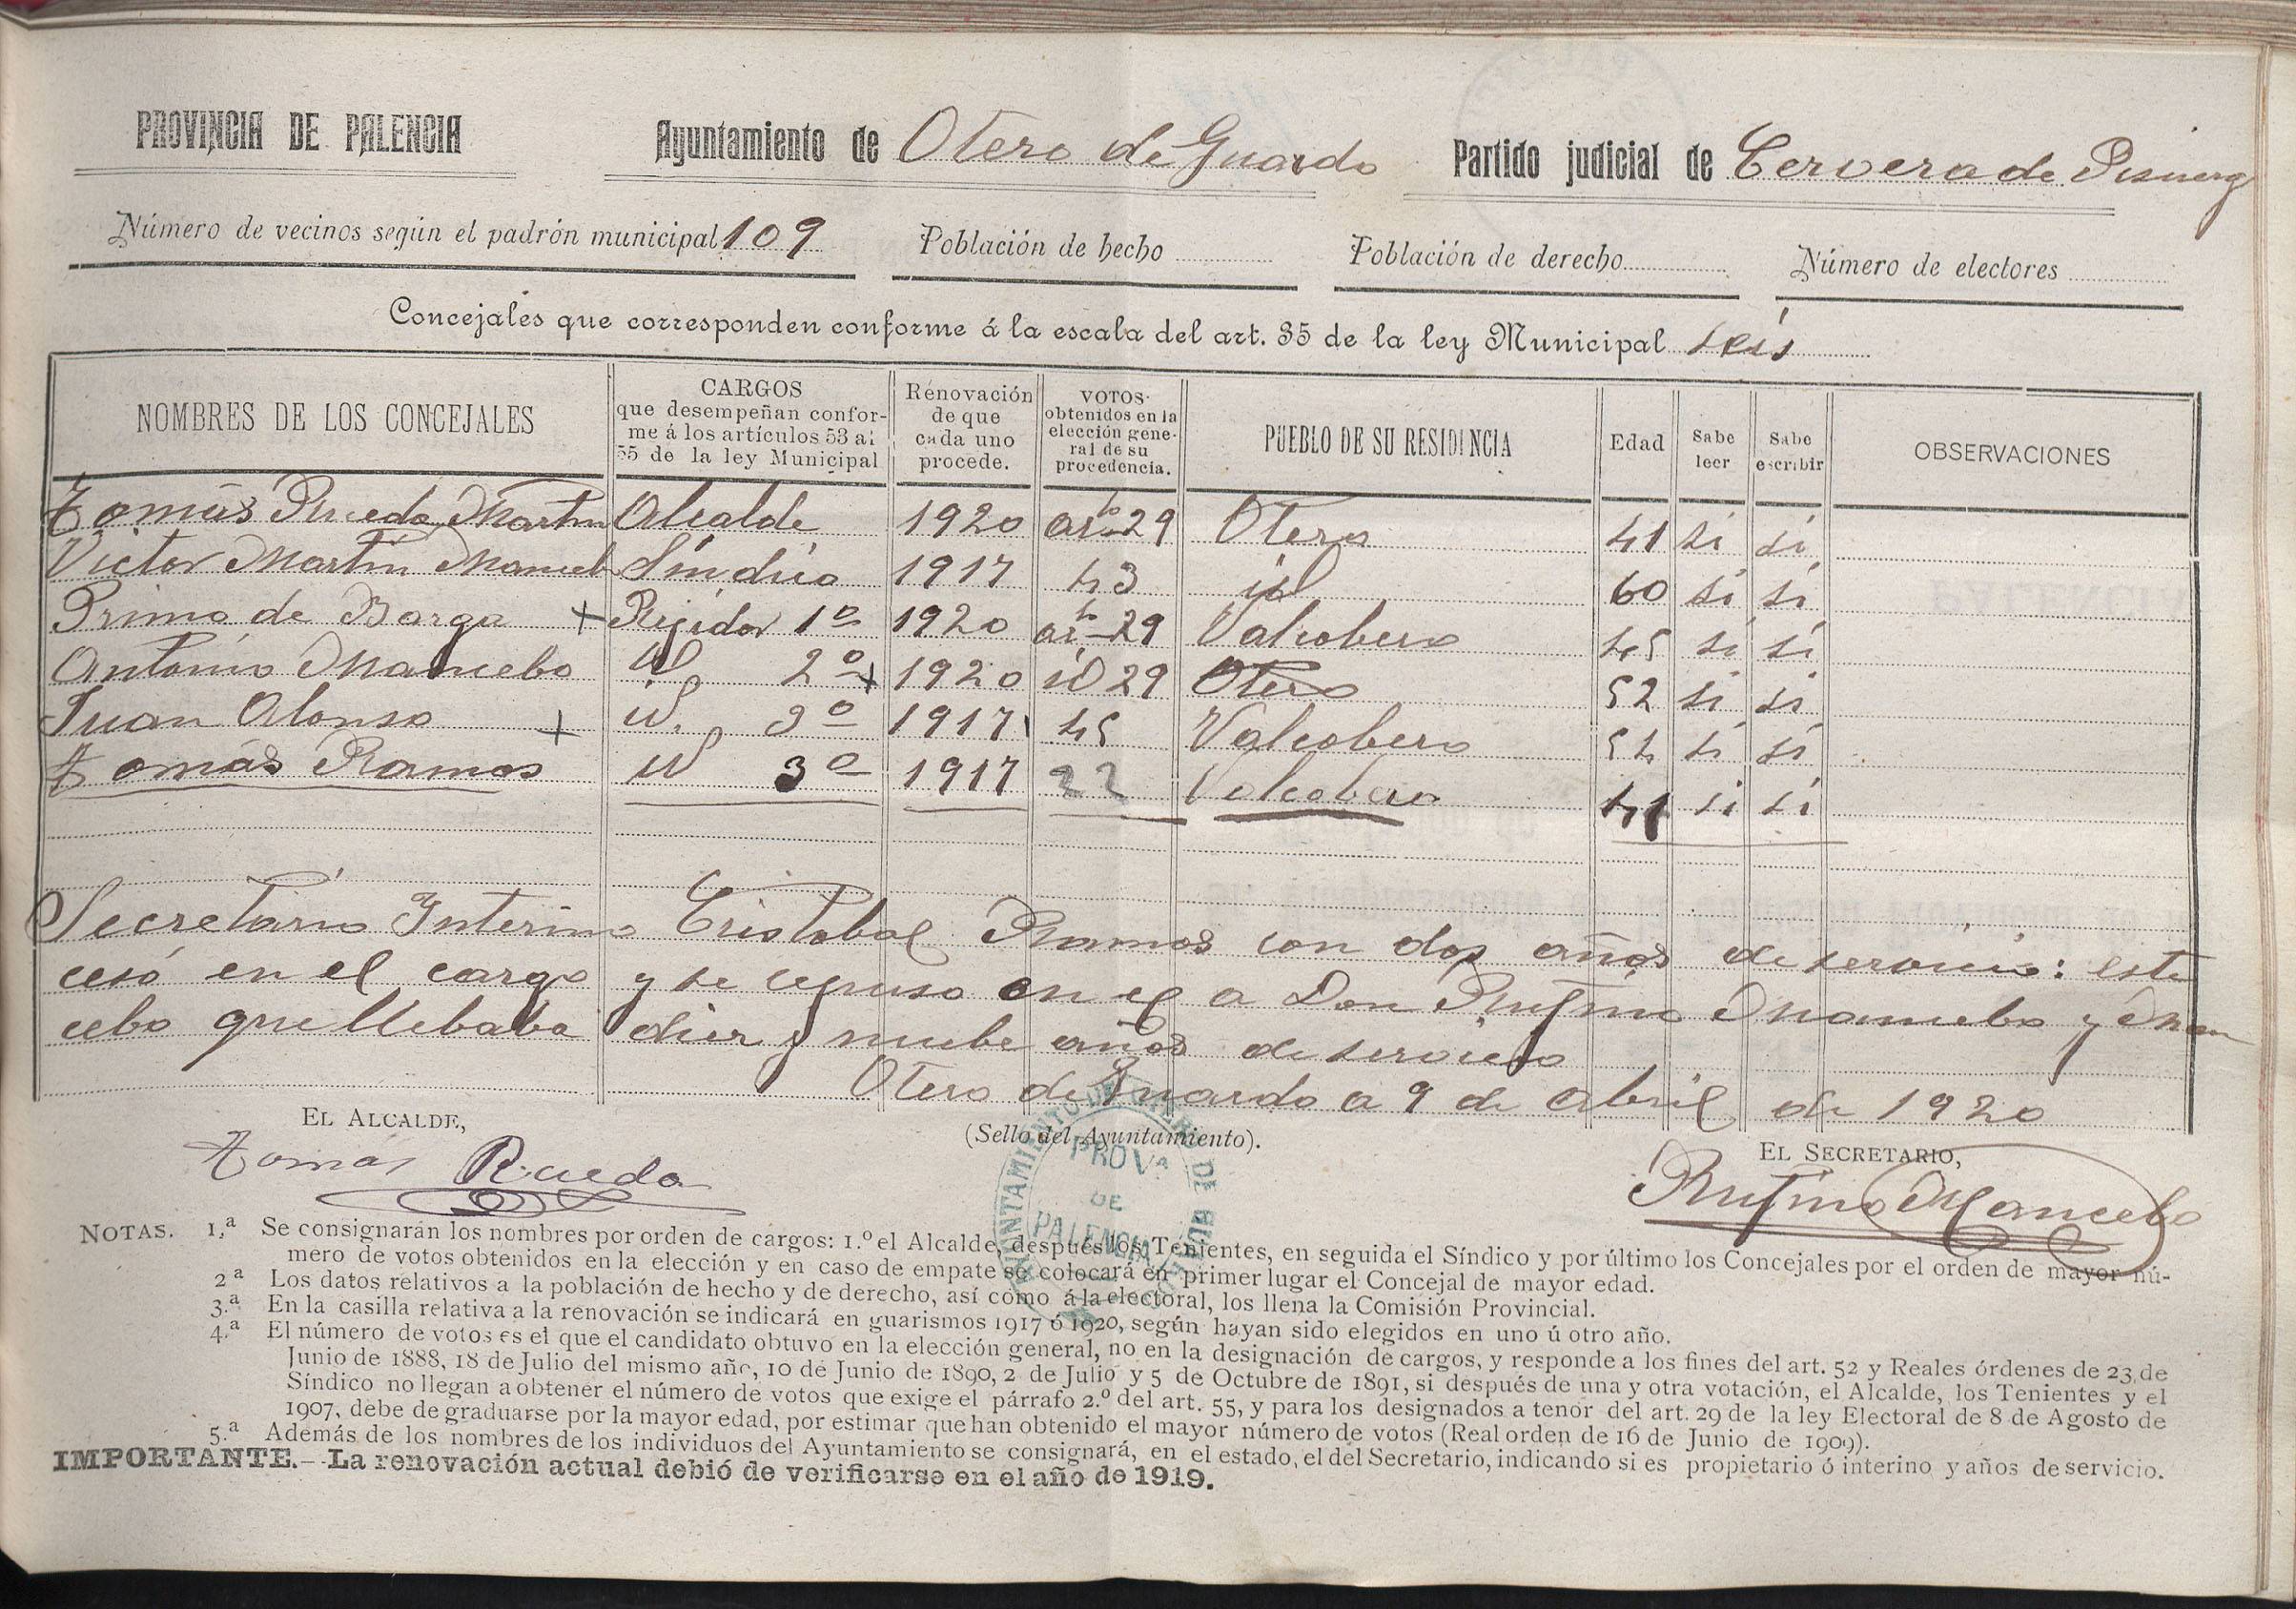 PROVINCIA DE PALENCIA Ayuntamiento de Otero de Guardo Partido judicial de Cervera de Pisuerg
Número de vecinos según el padrón municipal 109 Población de hecho Población de derecho Número de electores
Concejales que corresponden conforme á la escala del art. 35 de la ley Municipal seis
NOMBRES DE LOS CONCEJALES
CARGOS
que desempeñan confor-
me á los artículos 53 al
55 de la ley Municipal
Renovación
de que
cada uno
procede.
VOTOS
obtenidos en la
elección gene-
ral de su
procedencia.
PUEBLO DE SU RESIDENCIA
Edad
Sabe
leer
Sabe
escribir
OBSERVACIONES
Tomás Rueda Martin Alcalde 1920 arto 29 Otero 41 si si
Victor Martin Manceb Síndico 1917 43 id 60 si si
Primo de Barga + Rejidor 1º 1920 arto 29 Valcobero 45 si si
Antonio Mancebo id 2º + 1920 id 29 Otero 52 si si
Juan Alonso + id. 3º 1917 45 Valcobero 54 si si
Tomás Ramos id 3º 1917 22 Valcobero 41 si si
Secretario Interino Cristobal Ramos con dos años de servicio: este
cesó en el cargo y se repuso en el a Don Rufino Mancebo y Man
cebo que llebaba diez y nuebe años de servicio
Otero de Guardo a 9 de Abril de 1920
EL ALCALDE, (Sello del Ayuntamiento). EL SECRETARIO,
Tomás Rueda Rufino Mancebo
AYUNTAMIENTO DE OTERO DE GUARDO
PROVª
DE
PALENCIA
NOTAS. 1.ª Se consignarán los nombres por orden de cargos: 1.º el Alcalde, después los Tenientes, en seguida el Síndico y por último los Concejales por el orden de mayor nú-
mero de votos obtenidos en la elección y en caso de empate se colocará en primer lugar el Concejal de mayor edad.
2ª Los datos relativos a la población de hecho y de derecho, así como á la electoral, los llena la Comisión Provincial.
3.ª En la casilla relativa a la renovación se indicará en guarismos 1917 ó 1920, según hayan sido elegidos en uno ú otro año.
4.ª El número de votos es el que el candidato obtuvo en la elección general, no en la designación de cargos, y responde a los fines del art. 52 y Reales órdenes de 23 de
Junio de 1888, 18 de Julio del mismo año, 10 de Junio de 1890, 2 de Julio y 5 de Octubre de 1891, si después de una y otra votación, el Alcalde, los Tenientes y el
Síndico no llegan a obtener el número de votos que exige el párrafo 2.º del art. 55, y para los designados a tenor del art. 29 de la ley Electoral de 8 de Agosto de
1907, debe de graduarse por la mayor edad, por estimar que han obtenido el mayor número de votos (Real orden de 16 de Junio de 1909).
5.ª Además de los nombres de los individuos del Ayuntamiento se consignará, en el estado, el del Secretario, indicando si es propietario ó interino y años de servicio.
IMPORTANTE.--La renovación actual debió de verificarse en el año de 1919.